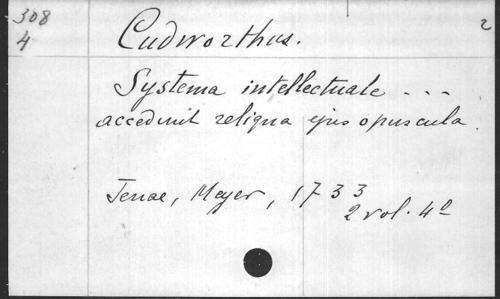 308
4
Cudworthus.
2
Systema intellectuale ...
accedunt reliqua ejus opuscula.
Jenae, Meyer, 1733
2 vol. 4º